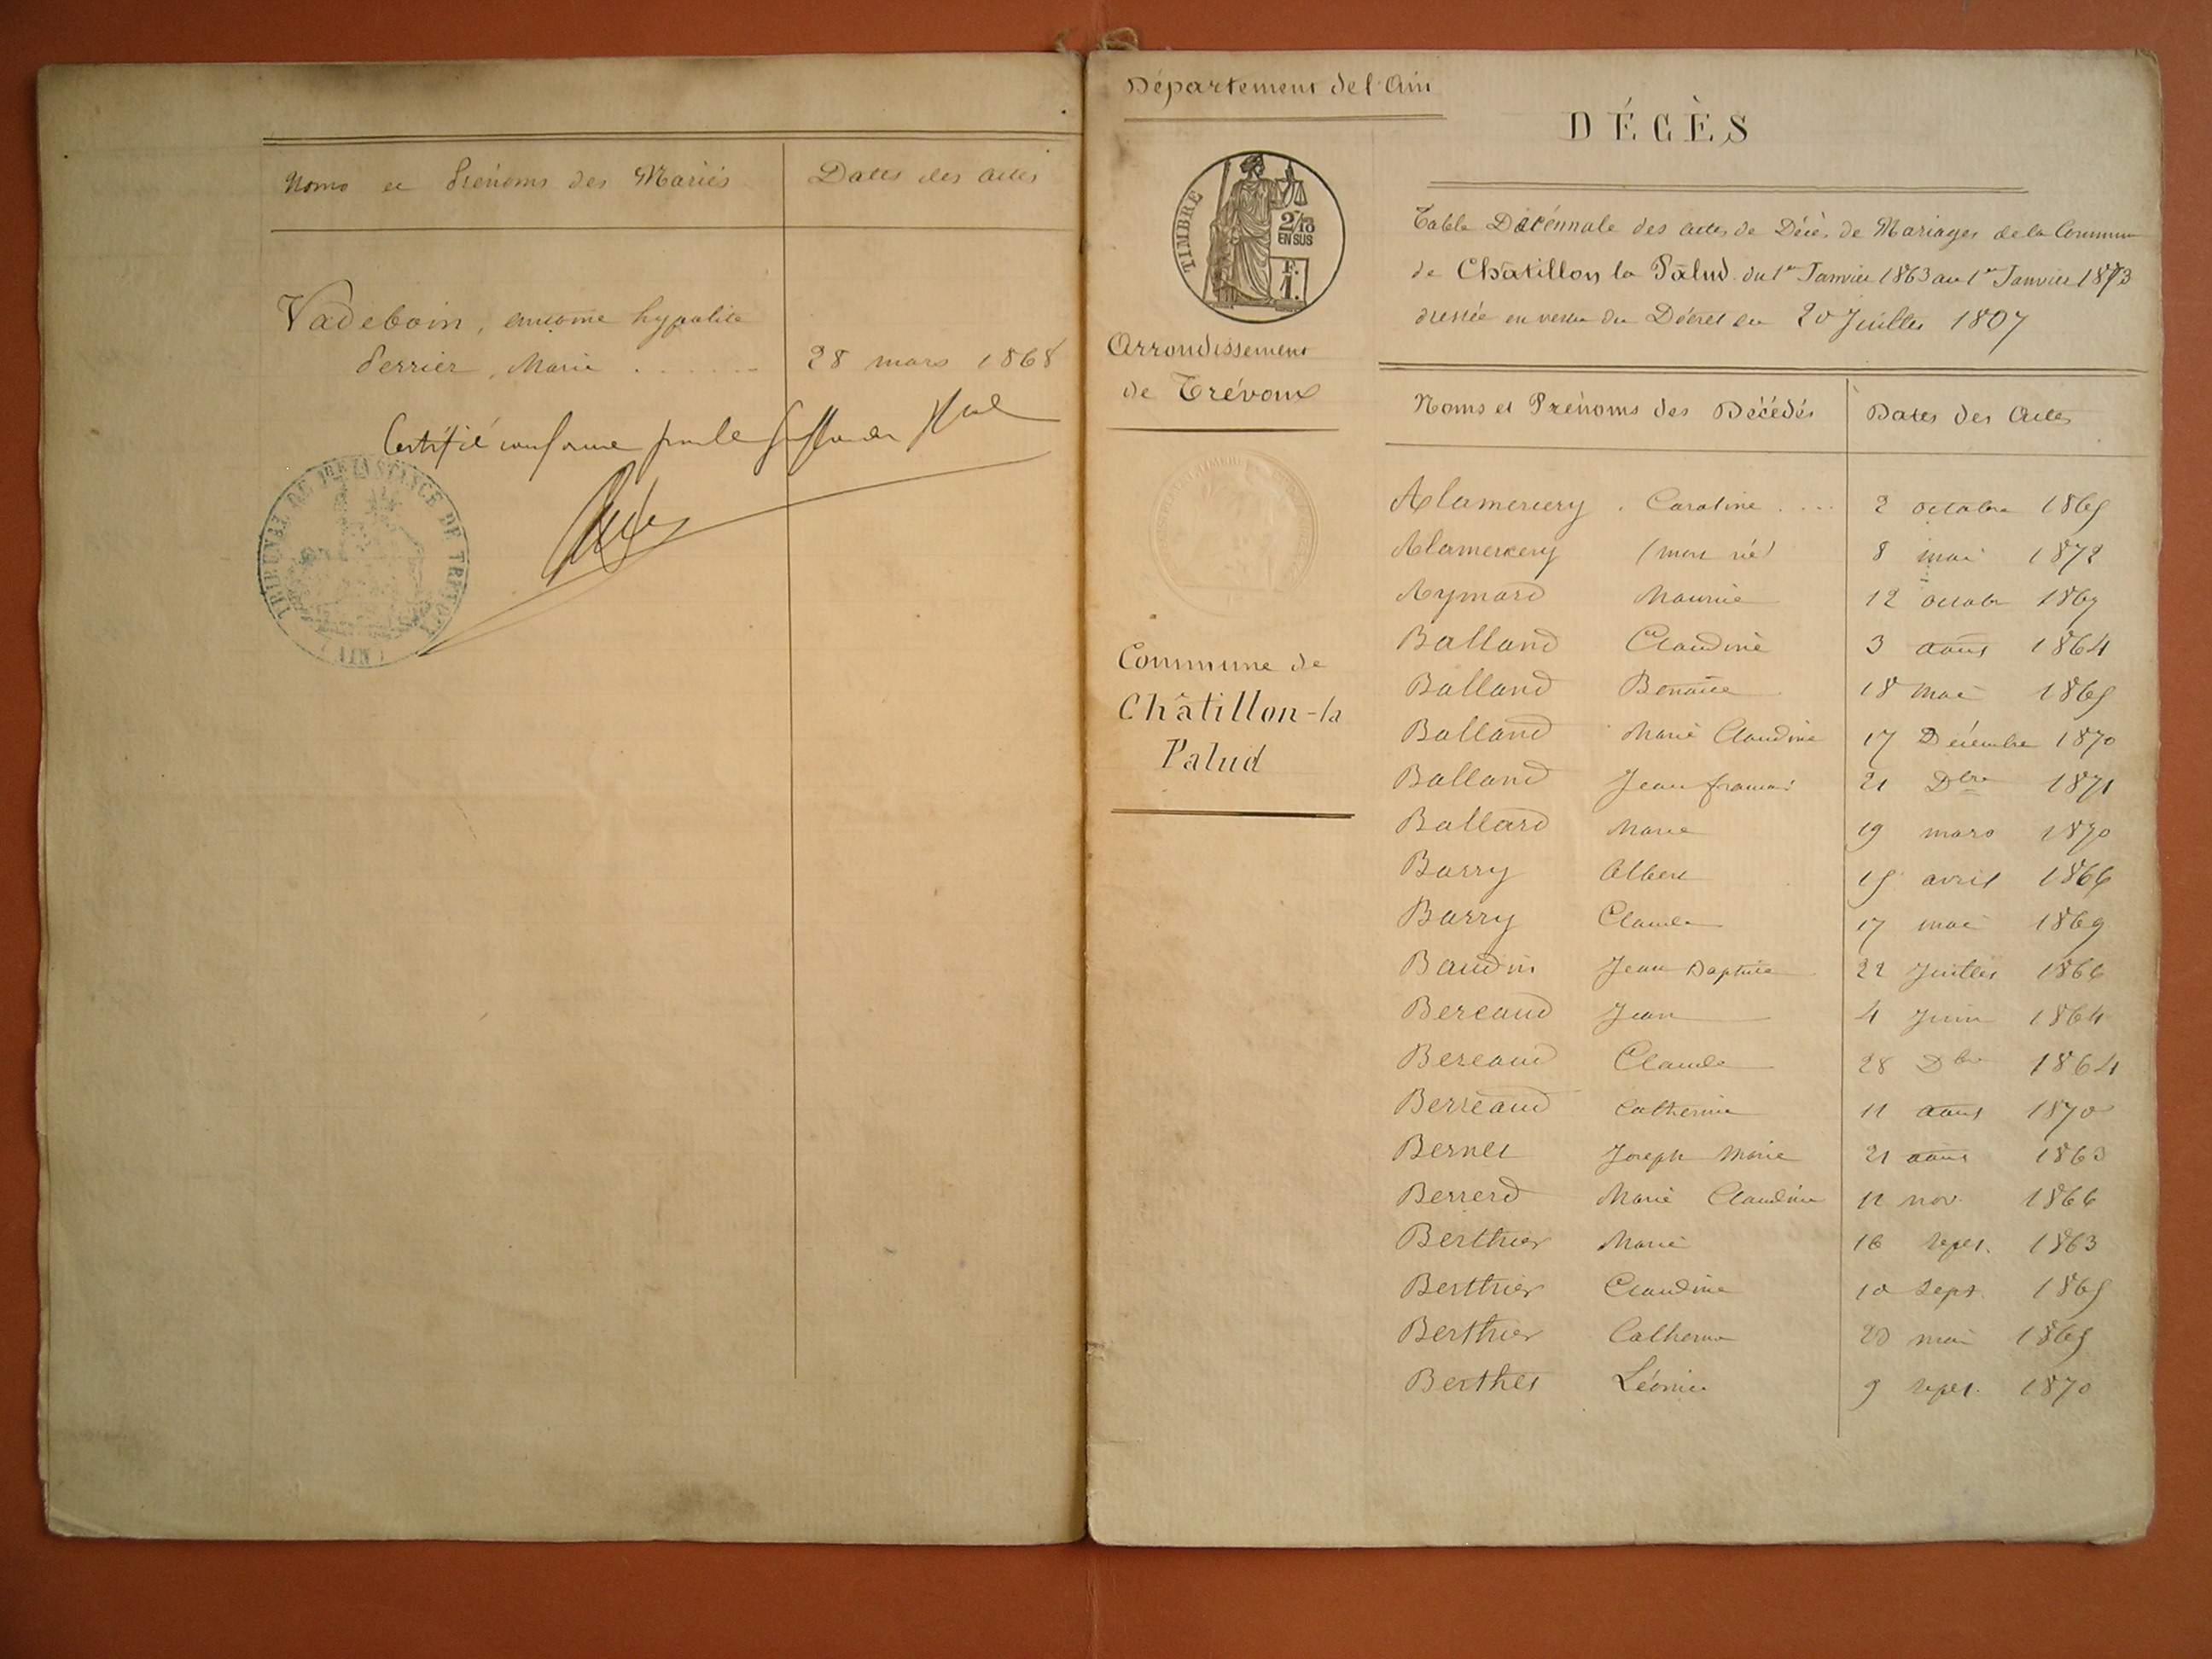 Noms et Prénoms des Mariés
Dates des actes
Vadeboin, hypolite
Perrier, Marie . . . . . . 28 mars 1868
Certifié conforme
TRIBUNAL DE 1RE INSTANCE DE TREVOUX
(AIN)
Département de l'Ain
TIMBRE
2/10
EN SUS
F.
1.
Arrondissement
de Trévoux
Commune de
Châtillon-la
Palud
DÉCÈS
Table Décennale des actes de Décès de Mariages de la Commune
de Châtillon la Palud du 1er Janvier 1863 au 1er Janvier 1873
dressée en vertu du Décret du 20 Juillet 1807
Noms et Prénoms des Décédés Dates des Actes
Alamercery . Caroline . . . . 2 octobre 1865
Alamercery (mort né) 8 mai 1872
Aymard Maurice 12 octobre
Balland Claudine 3 aout 1864
Balland Benoite 18 mai 1865
Balland Marie Claudine 17 Décembre 1870
Balland Jean françois 21 Dbre 1871
Ballard Marie 19 mars 1870
Barry Albert 15 avril 1866
Barry Claude 17 mai 1869
Baudin Jean Baptiste 22 Juillet 1866
Bereaud Jean 4 Juin 1864
Bereaud Claude 28 Dbre 1864
Berreaud Catherine 11 aout 1870
Bernet Joseph Marie 21 aout 1863
Berrerd Marie Claudine 11 nov. 1866
Berthier Marie 16 sept. 1863
Berthier Claudine 10 sept. 1865
Berthier Catherine 20 mai 1865
Berthet Léonie 9 sept. 1870